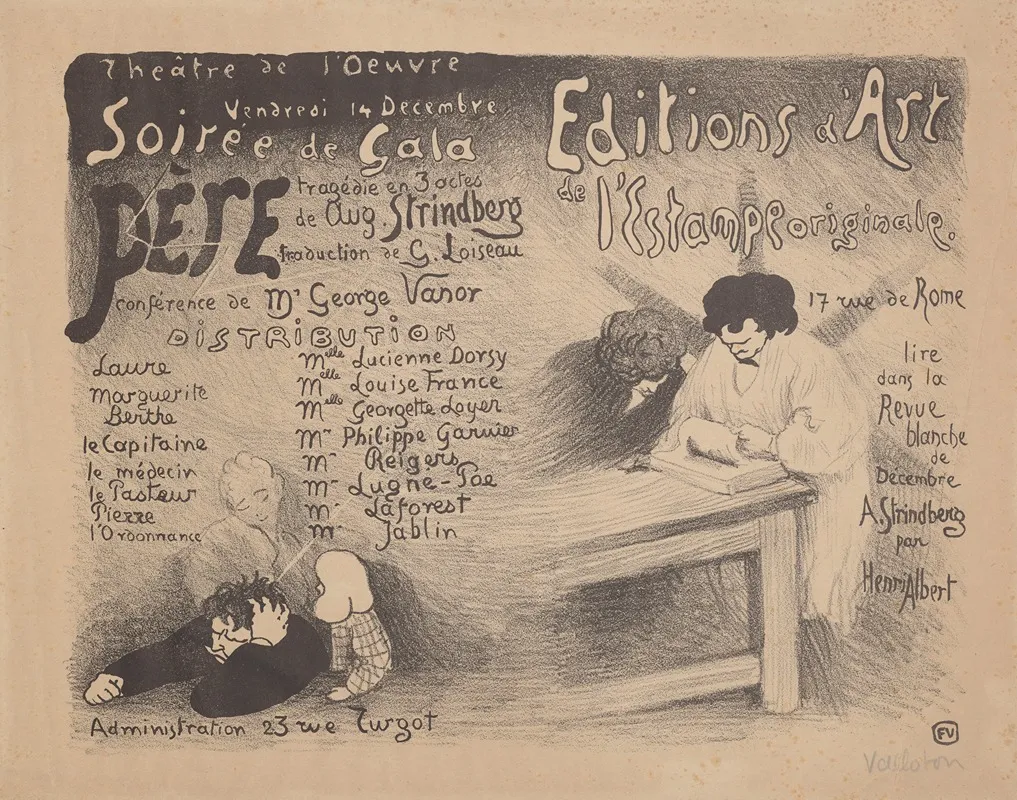 Theâtre de l'Oeuvre
Vendredi 14 Decembre
Soirée de Gala
PÈRE
tragédie en 3 actes
de Aug. Strindberg
traduction de G. Loiseau
conférence de Mr George Vanor
DISTRIBUTION
Laure Melle Lucienne Dorsy
Marguerite Melle Louise France
Berthe Melle Georgette Loyer
le Capitaine Mr Philippe Garnier
le médecin Mr Reigers
le Pasteur Mr Lugne-Poe
Pierre Mr Laforest
l'Ordonnance Mr Jablin
Administration 23 rue Turgot
Editions d'Art
de l'Estampe originale.
17 rue de Rome
lire
dans la
Revue
blanche
de
Décembre
A. Strindberg
par
Henri Albert
FV
Vallotton